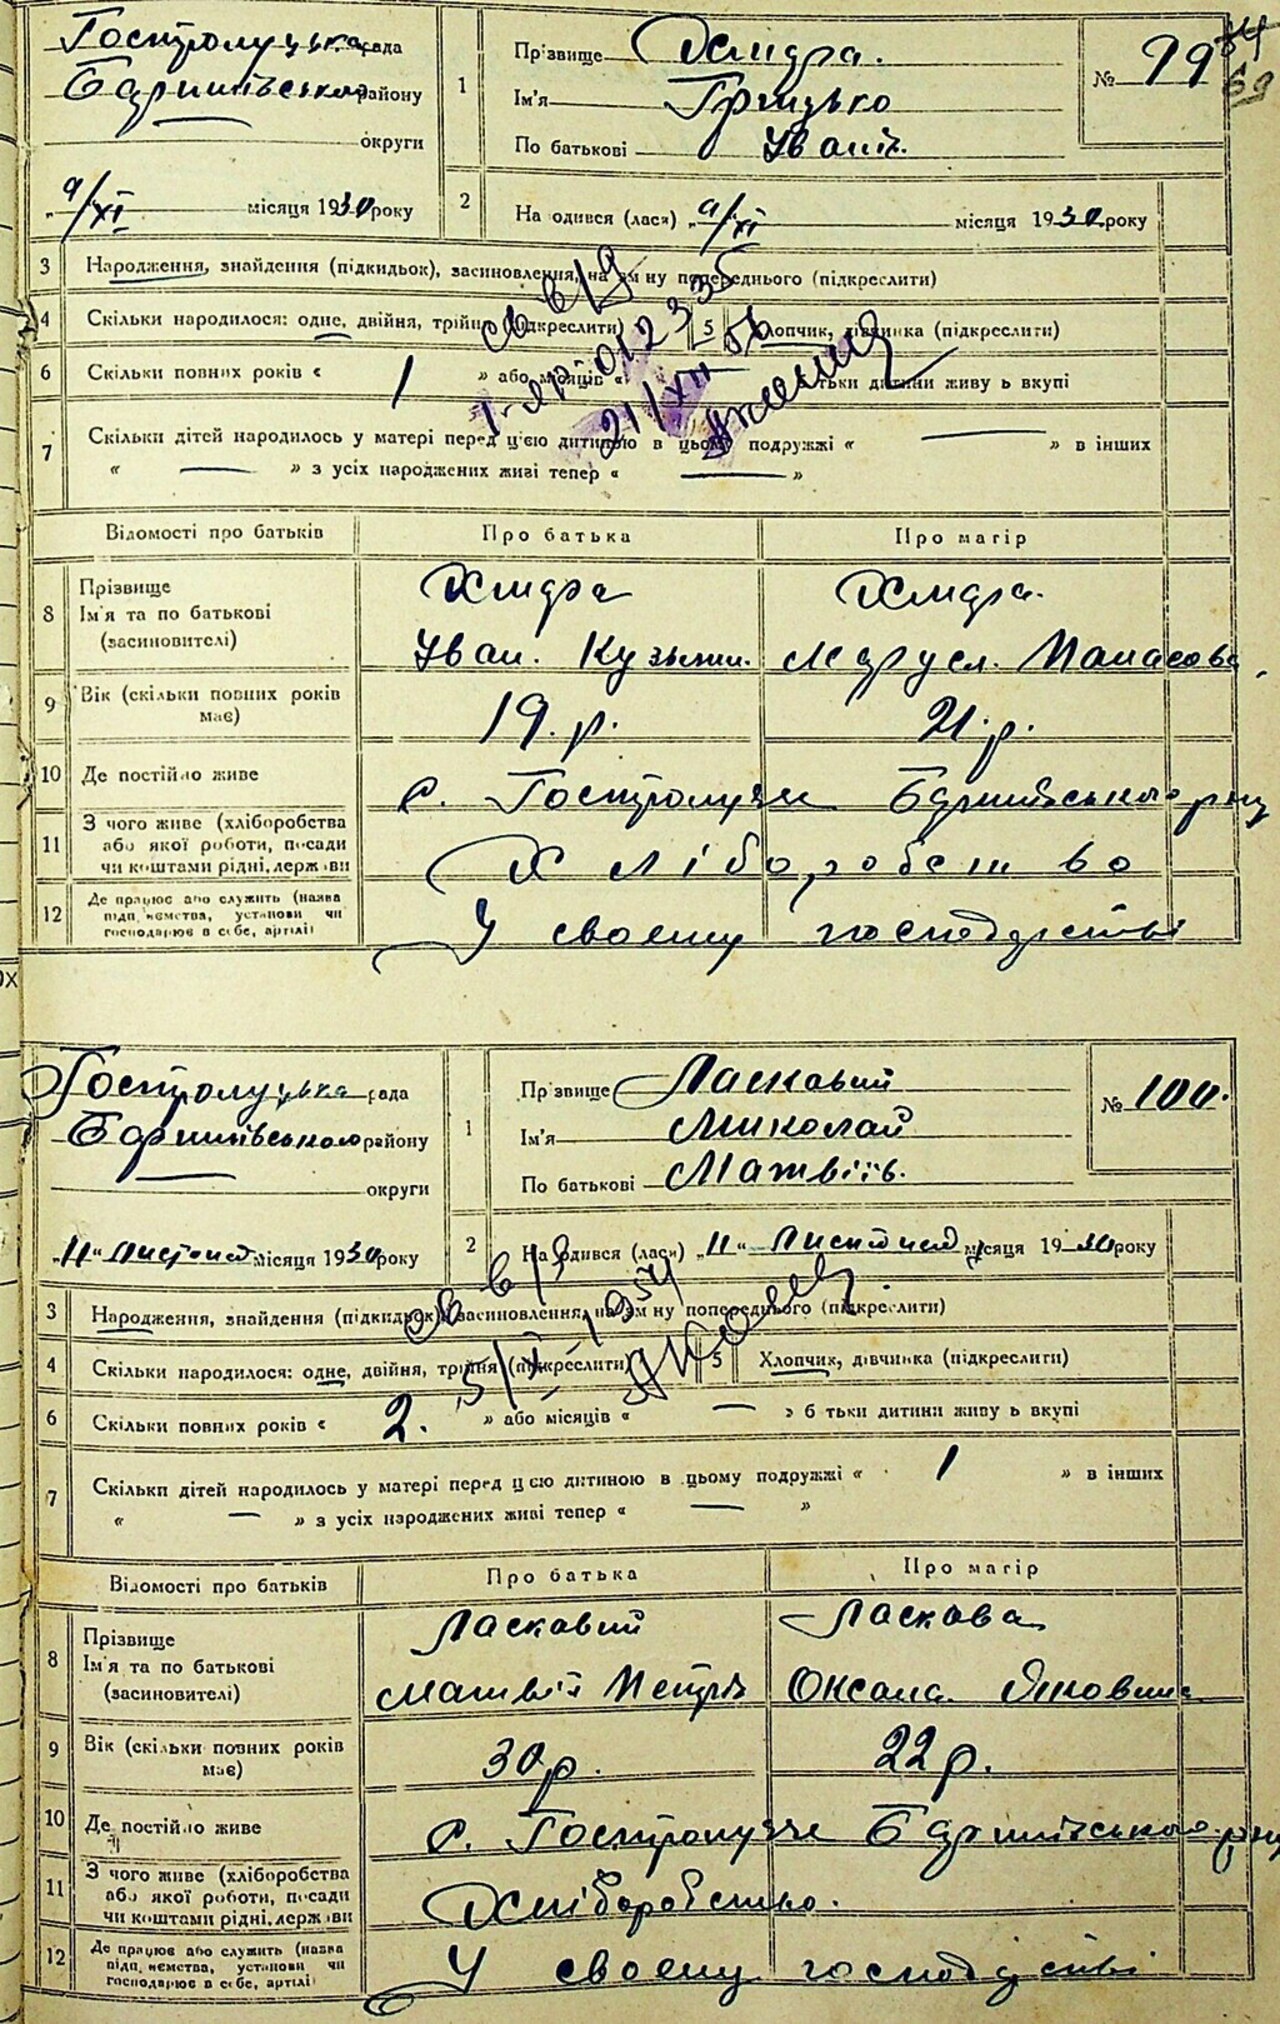 Гостролуцька рада
Баришівського району
округи
9/XI місяця 1930 року
1
Прізвище Хмидра.
Ім'я Грицько
По батькові Іванів.
№ 99
69
2
На одився (лася) „9/XI місяця 1930 року
3 Народження, знайдення (підкидьок), засиновлення, на зм ну попереднього (підкреслити)
4 Скільки народилося: одне, двійня, трійня (підкреслити) 5 Хлопчик, дівчинка (підкреслити)
6 Скільки повних років « 1 » або місяців « б тьки дитини живу ь вкупі
7 Скільки дітей народилось у матері перед цією дитиною в цьому подружжі « — » в інших
« — » з усіх народжених живі тепер « — »
21/XII 56
Відомості про батьків Про батька Про матір
8 Прізвище
Ім'я та по батькові
(засиновителі)
Хмидра Хмидра.
Іван. Кузьмич. Марусл. Панасова
9 Вік (скільки повних років має)
19. р. 21. р.
10 Де постійно живе
с. Гостролуччя Баришівського р-ну
11 З чого живе (хліборобства
або якої роботи, посади
чи коштами рідні, держави
Хліборобство
12 Де працює або служить (назва
підп. ємства, установи чи
господарює в себе, артілі)
У своєму господарстві
Гостролуцька рада
Баришівського району
округи
„11“ Листопад місяця 1930 року
1
Прізвище Ласкавий
Ім'я Миколай
По батькові Матвіїв.
№ 100.
2
На одився (лася) „11“ Листопад місяця 1930 року
3 Народження, знайдення (підкидьок), засиновлення, на зм ну попереднього (підкреслити)
4 Скільки народилося: одне, двійня, трійня (підкреслити) 5 Хлопчик, дівчинка (підкреслити)
6 Скільки повних років « 2. » або місяців « — » б тьки дитини живу ь вкупі
7 Скільки дітей народилось у матері перед цією дитиною в цьому подружжі « 1 » в інших
« — » з усіх народжених живі тепер « — »
Відомості про батьків Про батька Про матір
8 Прізвище
Ім'я та по батькові
(засиновителі)
Ласкавий Ласкава
Матвій Петрів Оксана Яковина
9 Вік (скільки повних років має)
30 р. 22 р.
10 Де постійно живе
с. Гостролуччя Баришівського р-ну
11 З чого живе (хліборобства
або якої роботи, посади
чи коштами рідні, держави
Хліборобство.
12 Де працює або служить (назва
підп. ємства, установи чи
господарює в себе, артілі)
У своєму господарстві